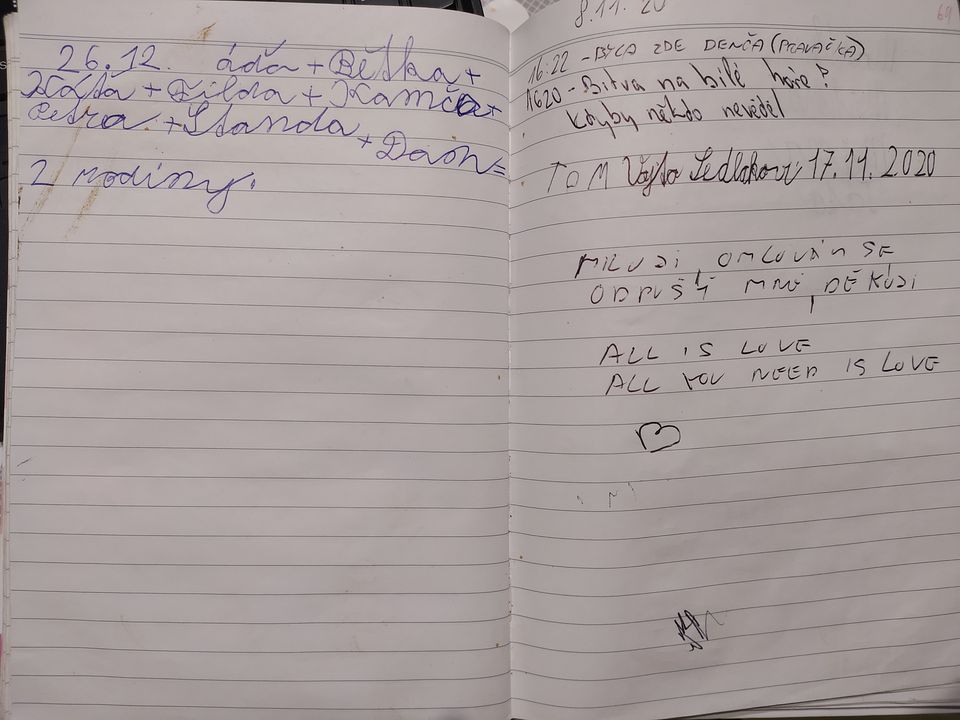 26.12. áďa + Bětka +
Vojta + Bilda + Kamča +
Petra + Standa
+ Dan =
2 rodiny.
8.11. 20
69
16:22 - BYLA ZDE DENČA (PRAVAČKA)
1620 - Bitva na bílé hoře?
kdyby někdo nevěděl
TOM Vojta 17.11.2020
MILUJI OMLOUVÁM SE
ODPUSŤ MNĚ, DĚKUJI
ALL IS LOVE
ALL YOU NEED IS LOVE